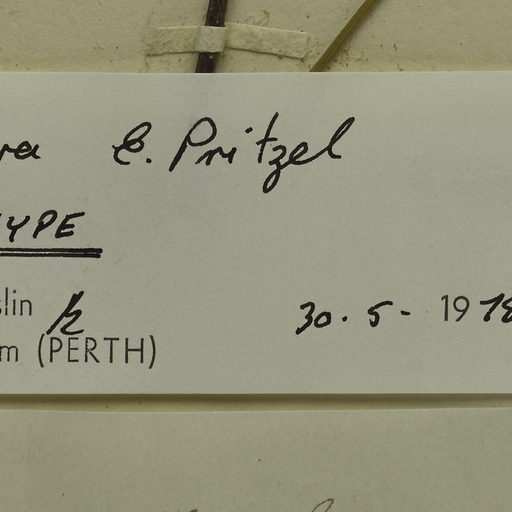 ra E. Pritzel
TYPE
slin
30. 5 - 1978
m (PERTH)